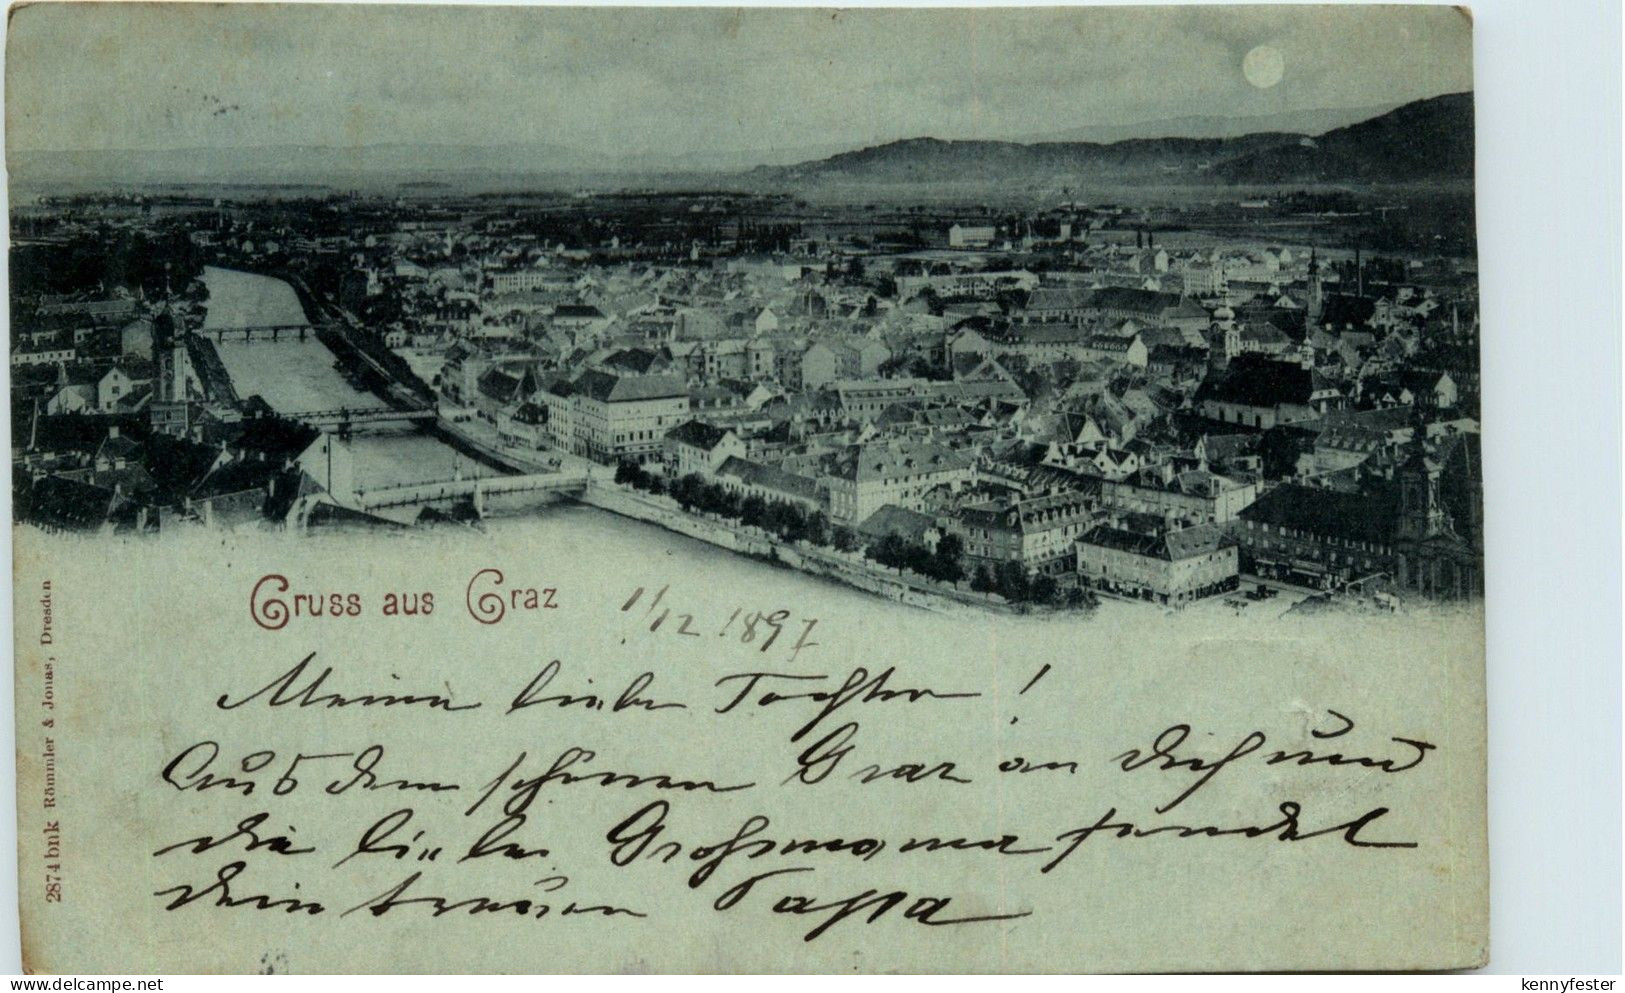 Gruss aus Graz
1/12 1897
Meine liebe Tochter!
Aus dem schönen Graz an Dich und
die liebe Großmama sendet
Dein treuer Papa
2874 bnk Römmler & Jonas, Dresden
www.delcampe.net
kennyfester